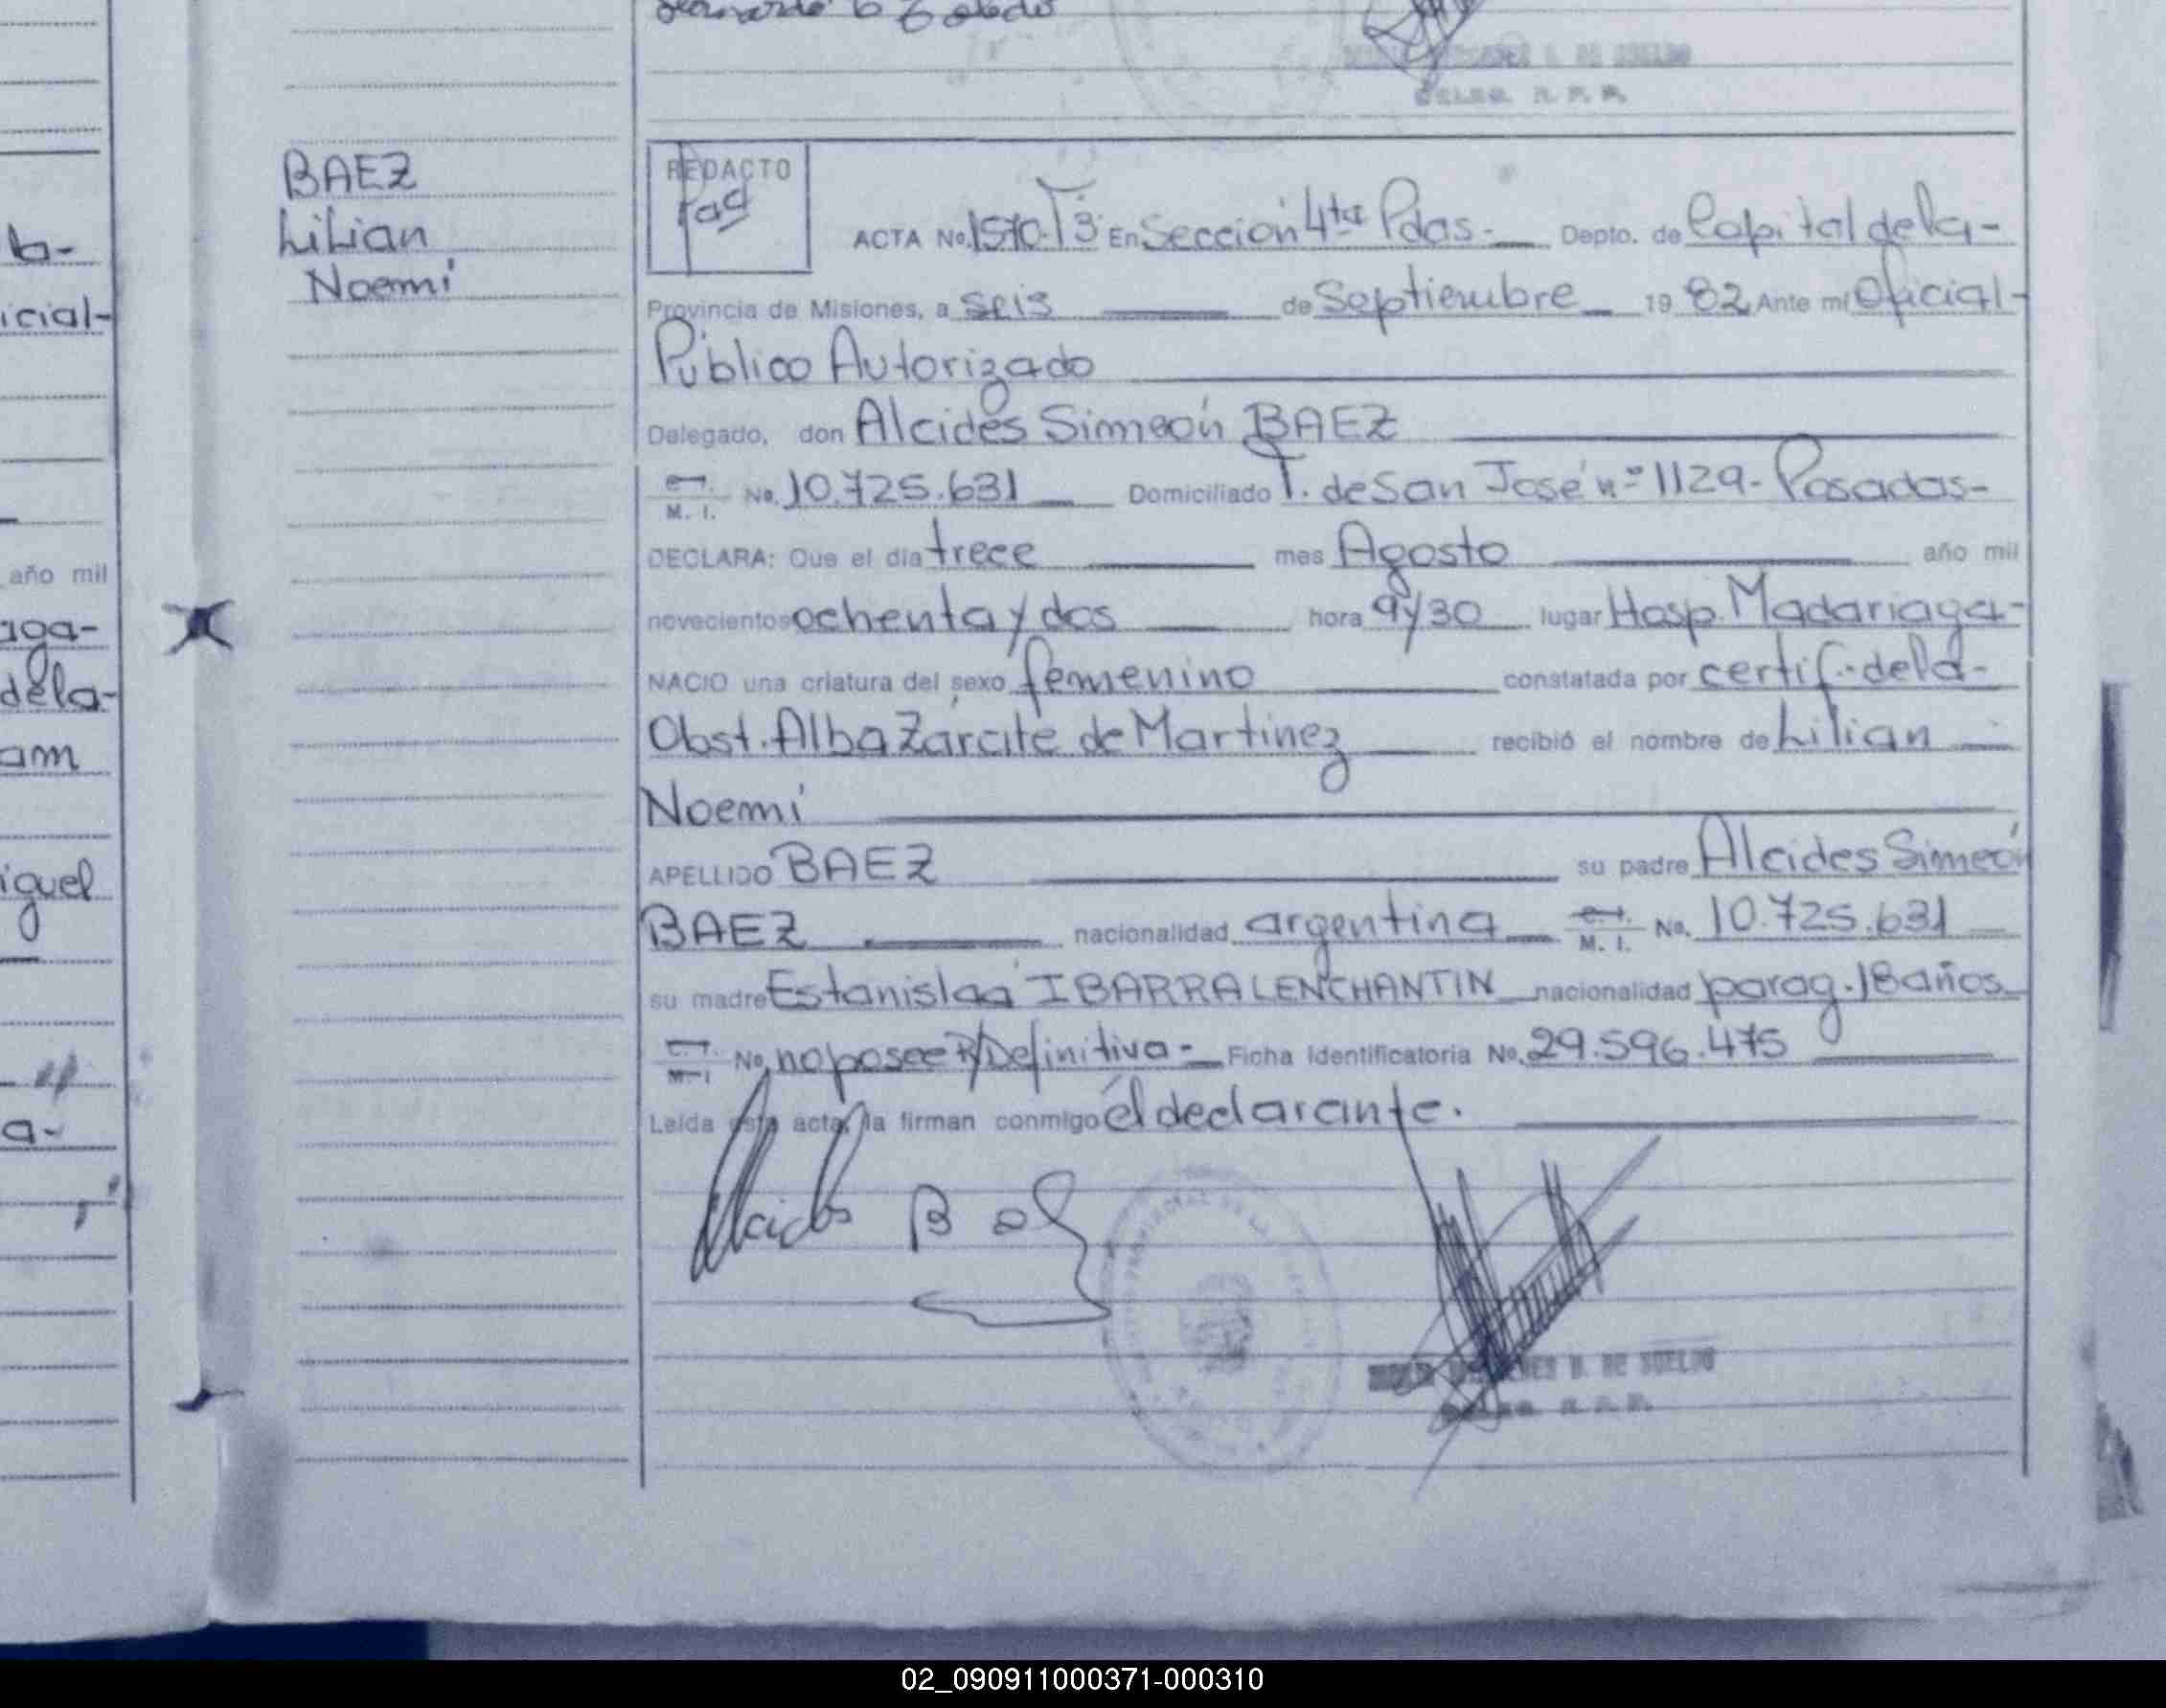 BAEZ
Lilian
Noemí
REDACTO
ACTA No. 1510-T3 En Sección 4ta Pdas.- Depto. de Capital de la-
Provincia de Misiones, a seis de Septiembre 1982 Ante mí Oficial-
Público Autorizado
Delegado, don Alcides Simeón BAEZ
M. I. No. 10.725.631 Domiciliado T. de San José nº 1129- Posadas-
DECLARA: Que el día trece mes Agosto año mil
novecientos ochenta y dos hora 9y30 lugar Hosp. Madariaga-
NACIO una criatura del sexo femenino constatada por certif. de la-
Obst. Alba Zárate de Martinez recibió el nombre de Lilian
Noemí
APELLIDO BAEZ su padre Alcides Simeón
BAEZ nacionalidad argentina M. I. No. 10.725.631
su madre Estanislaa IBARRA LENCHANTIN nacionalidad parag. 18 años
No. no posee R/Definitiva- Ficha Identificatoria No. 29.596.475
Leída esta acta, la firman conmigo él declarante.
Alcides
DE SUELDO
02_090911000371-000310
año mil
icial-
aga-
dela-
am
iguel
a-